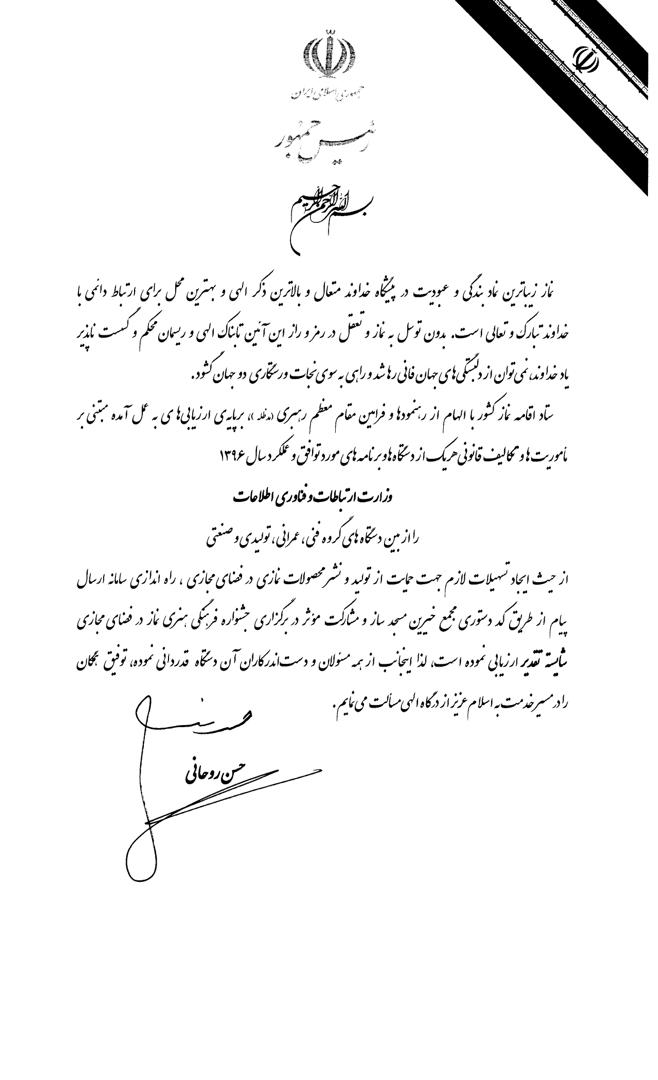 جمهوری اسلامی ایران
رئیس جمهور
بسم الله الرحمن الرحیم
نماز زیباترین نماد بندگی و عبودیت در پیشگاه خداوند متعال و بالاترین ذکر الهی و بهترین محل برای ارتباط دائمی با
خداوند تبارک و تعالی است. بدون توسل به نماز و تعقل در رمز و راز این آئین تابناک الهی و ریسمان محکم و گسست ناپذیر
یاد خداوند، نمی‌توان از دلبستگی‌های جهان فانی رها شد و راهی به سوی نجات و رستگاری دو جهان گشود.
ستاد اقامه نماز کشور با الهام از رهنمودها و فرامین مقام معظم رهبری (مدظله)، بر پایه‌ی ارزیابی‌های به عمل آمده مبتنی بر
مأموریت‌ها و تکالیف قانونی هر یک از دستگاه‌ها و برنامه‌های مورد توافق و عملکرد سال ۱۳۹۶
وزارت ارتباطات و فناوری اطلاعات
را از بین دستگاه‌های گروه فنی، عمرانی، تولیدی و صنعتی
از حیث ایجاد تسهیلات لازم جهت حمایت از تولید و نشر محصولات نمازی در فضای مجازی ، راه اندازی سامانه ارسال
پیام از طریق کد دستوری مجمع خیرین مسجد ساز و مشارکت مؤثر در برگزاری جشنواره فرهنگی هنری نماز در فضای مجازی
شایسته تقدیر ارزیابی نموده است، لذا اینجانب از همه مسئولان و دست‌اندرکاران آن دستگاه قدردانی نموده، توفیق همگان
را در مسیر خدمت به اسلام عزیز از درگاه الهی مسألت می‌نمایم.
حسن روحانی